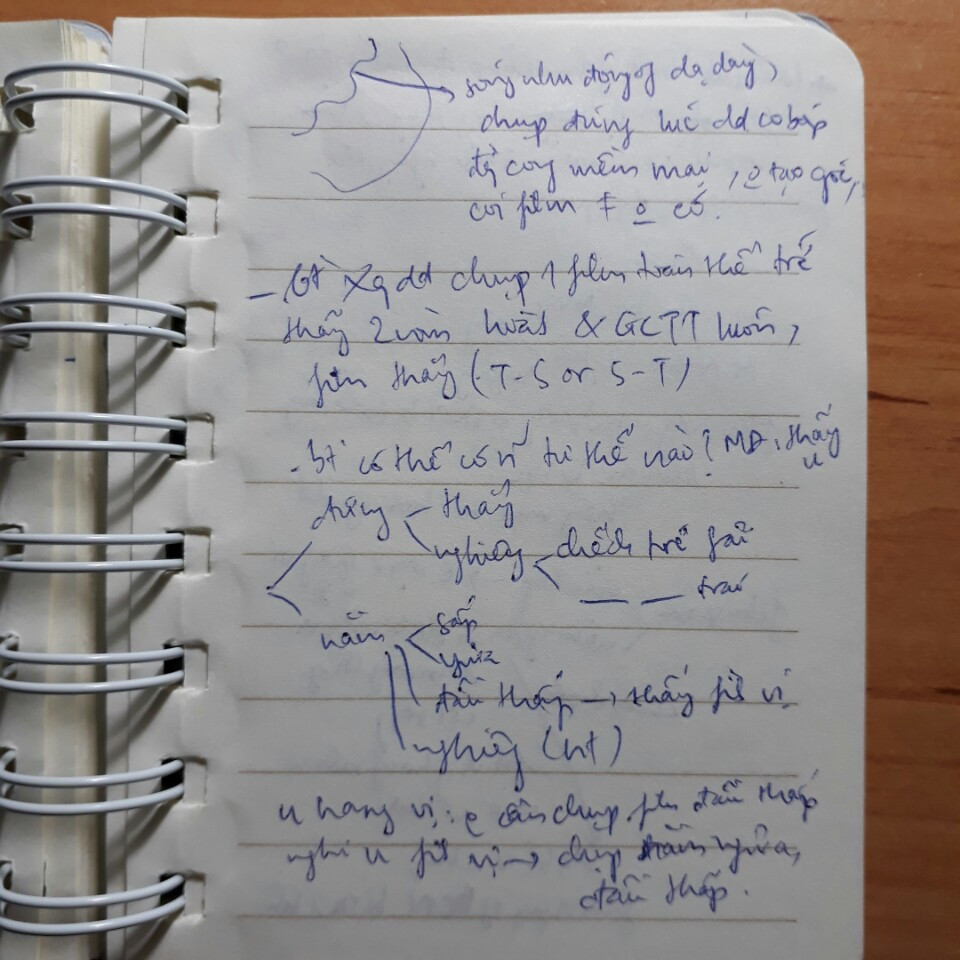 sóng nhu động of dạ dày,
chụp đúng lúc dd co bóp
độ cong mềm mại, o tạo góc,
coi film ≠ o có.
- bt XQ dd chụp 1 film toàn thể trễ
thấy 2 vòm hoành & GCTT luôn,
film thấy (T-S or S-T)
- bt có thể có ~ tư thế nào? MĐ: thấy
u
đứng - thẳng
nghiêng chếch trễ phải
— — trái
nằm sấp
ngửa
đầu thấp → thấy phì vị
nghiêng (nt)
u hang vị: o cần chụp film đầu thấp
nghi u phì vị → chụp nằm ngửa,
đầu thấp.